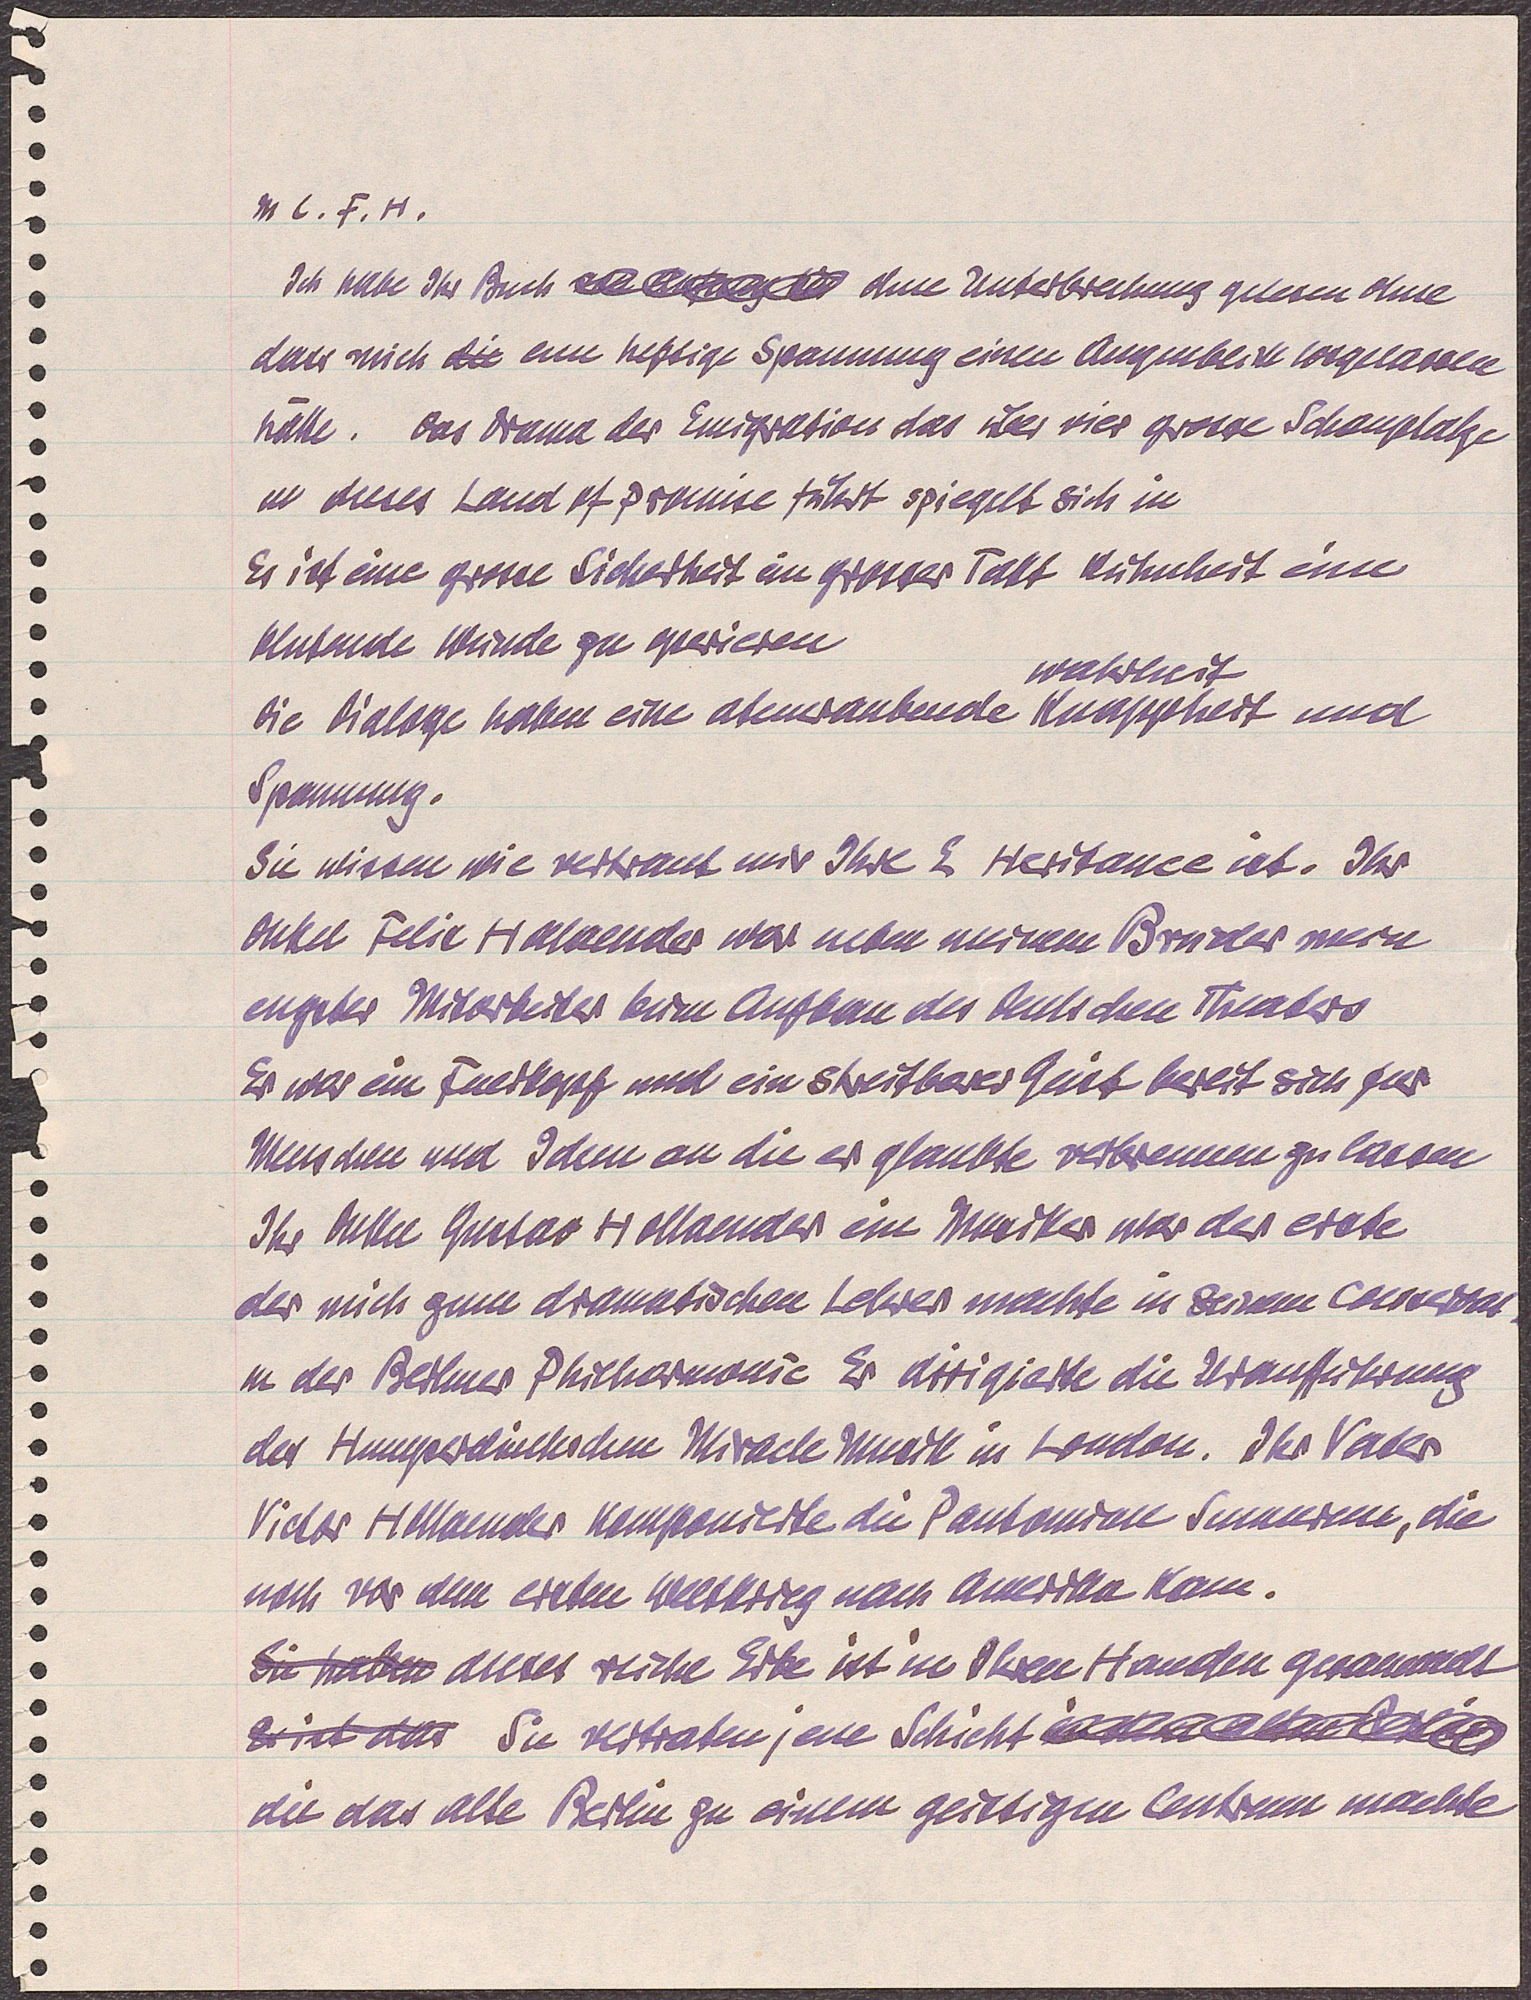 M L. F. H.
Ich habe Ihr Buch ohne Unterbrechung gelesen ohne
dass mich die eine heftige Spannung einen Augenblick losgelassen
hätte. Das Drama der Emigration das über vier grosse Schauplatze
in dieses Land of promise führt spiegelt sich in
Es ist eine grosse Sicherheit ein grosser Takt Kuhnheit eine
blutende Wunde zu operieren
wahrheit
Die Dialoge haben eine atemraubende Knappheit und
Spannung.
Sie wissen wie vertraut mir Ihre E Heritance ist. Ihr
Onkel Felix Hollaender war neben meinem Bruder mein
engster Mitarbeiter beim Aufbau des Deutschen Theaters
Er war ein Feuerkopf und ein streitbarer Geist bereit sich fur
Menschen und Ideen an die er glaubte verbrennen zu lassen
Ihr Onkel Gustav Hollaender ein Musiker war der erste
der mich zum dramatischen Lehrer machte in seinem Conservat.
in der Berliner Philharmonie Er dirigierte die Urauffuhrung
der Humperdinckschen Miracle Musik in London. Ihr Vater
Victor Hollaender komponierte die Pantomime Sumurun, die
noch vor dem ersten Weltkrieg nach Amerika kam.
Sie haben dieses reiche Erbe ist in Ihren Handen gesammelt
Es ist das Sie vertraten jene Schicht in dem alten Berlin
die das alte Berlin zu einem geistigen Centrum machte